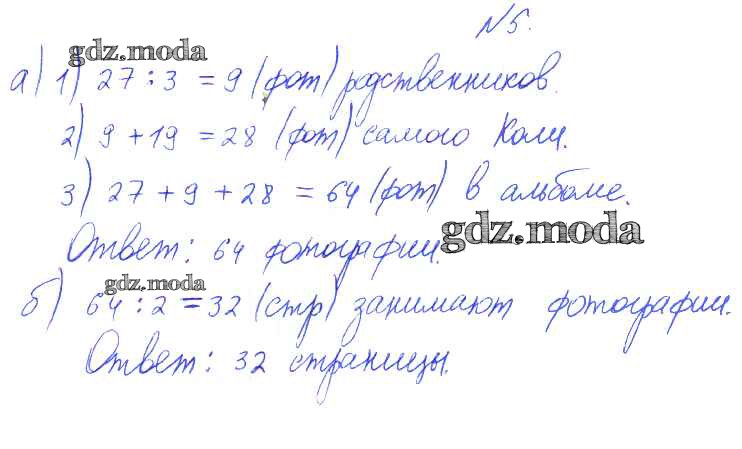 №5.
gdz.moda
а) 1) 27 : 3 = 9 (фот) родственников.
2) 9 + 19 = 28 (фот) самого Коли.
3) 27 + 9 + 28 = 64 (фот) в альбоме.
Ответ: 64 фотографии.
gdz.moda
gdz.moda
б) 64 : 2 = 32 (стр) занимают фотографии.
Ответ: 32 страницы.